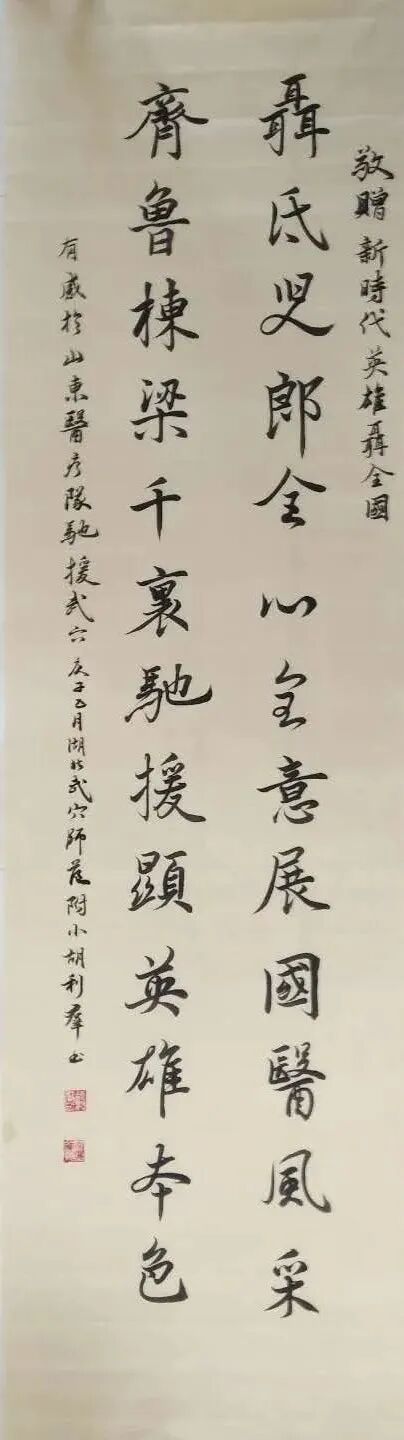 敬贈新時代英雄聶全國
聶氏児郎全心全意展國醫風采
齊魯棟梁千裏馳援顯英雄本色
有感於山東醫疗隊馳援武穴庚子五月湖北武穴師范附小胡利群书